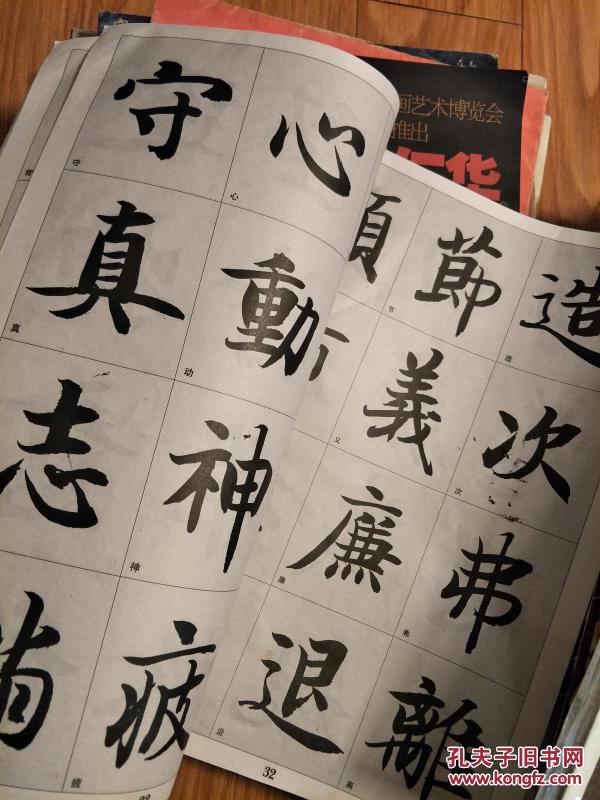 画艺术博览会
推出
华
心動神疲
守真志
心
动
神
疲
守
真
造次弗離
節義廉退
造
次
弗
离
节
义
廉
退
32
孔夫子旧书网
www.kongfz.com